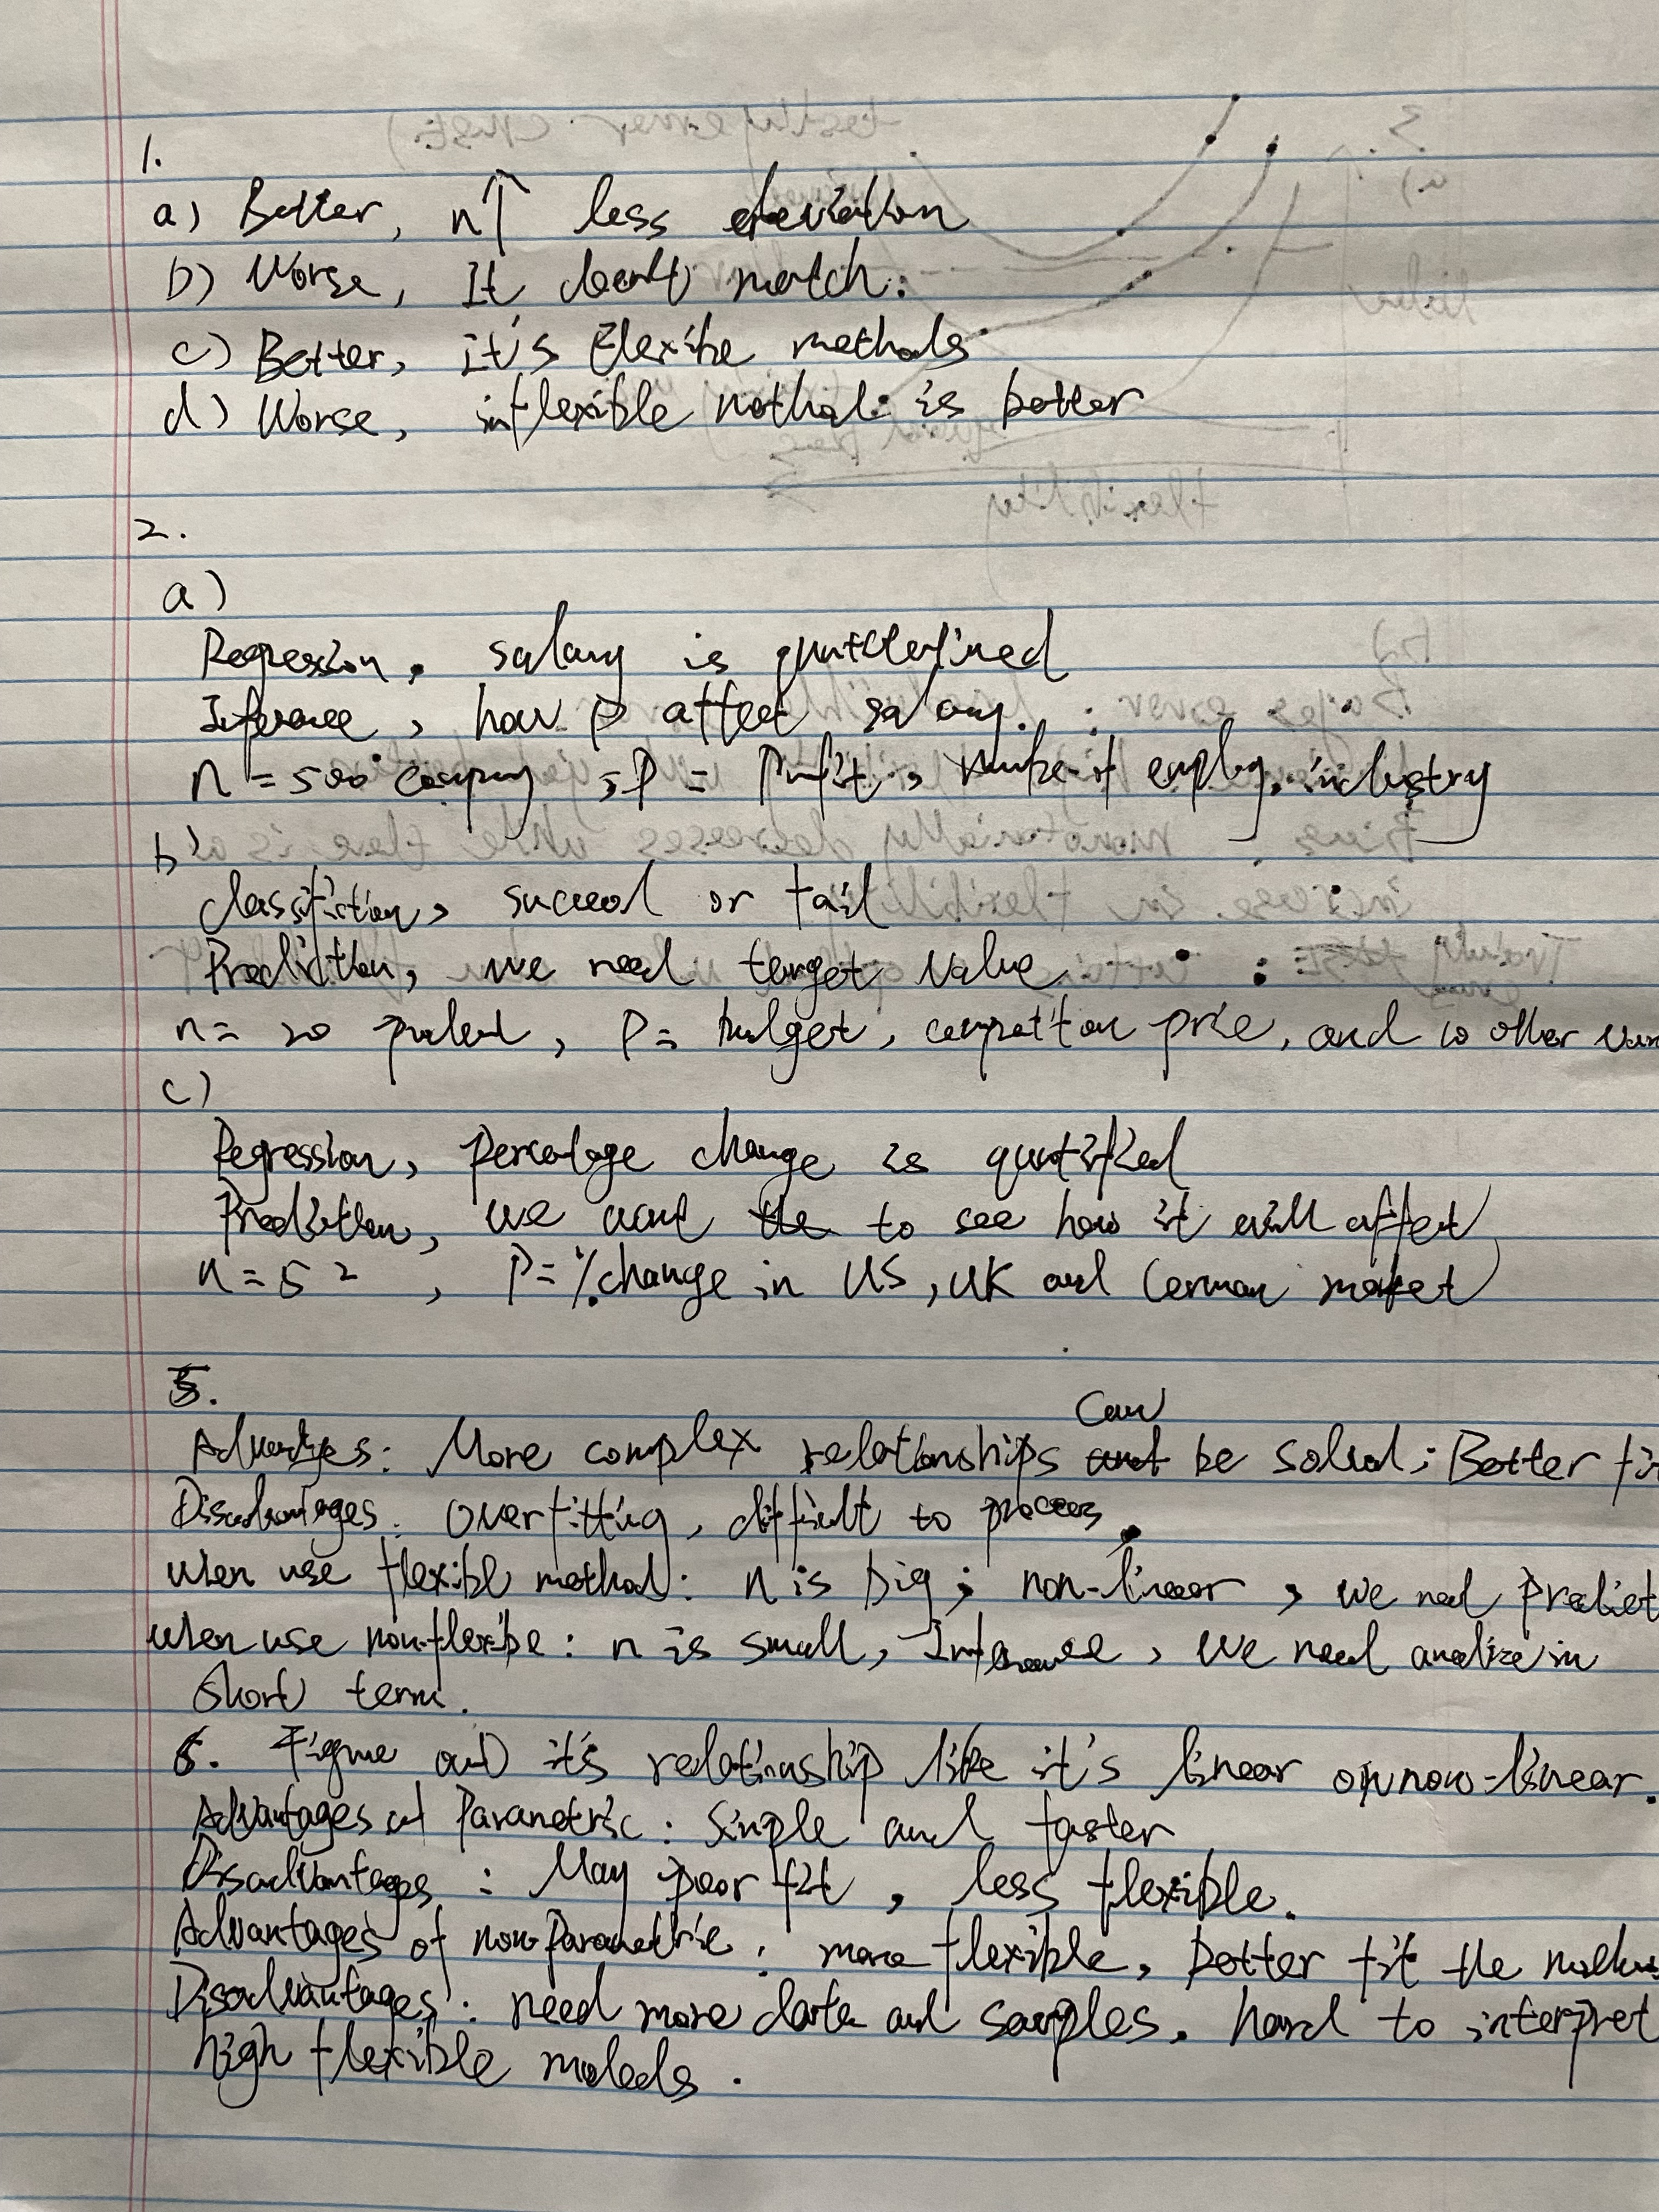 1.
a) Better, n↑ less deviation
b) Worse, It don't match.
c) Better, it's flexibe methods
d) Worse, inflexible method is better
2.
a)
Regression, salary is
Inference, how P affect salary.
n = 500 company, P = Profit, employ, industry
b)
Classifiction, succeed or fail
Prediction, we need target value
n = 20 , P = budget, price, and 10 other
c)
Regression, Percetage change is quotified
Prediction, we want to see how it will affect
n = 52, P = % change in US, UK and German market
5.
Advantges: More complex relationships can be solved; Better
Disadvantages: Overfitting, difficult to process.
when use flexibl method: n is big; non-linear, we need predict
when use non-flexibe: n is small, Inference, we need analize in
short term.
6. Figure out it's relationship like it's linear or non-linear.
Advantages of Parametric: Simple and faster
Disadvantages: May poor fit, less flexible.
Advantages of non-Parametric: more flexible, better fit the
Disadvantages: need more data and samples. hard to interpret
high flexible models.